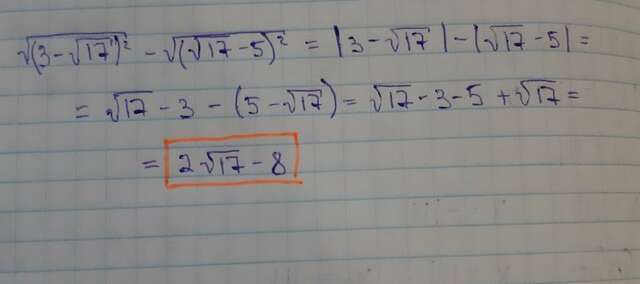 √(3-√17)² - √(√17-5)² = |3-√17| - |√17-5| =
= √17-3-(5-√17) = √17-3-5+√17 =
= 2√17-8